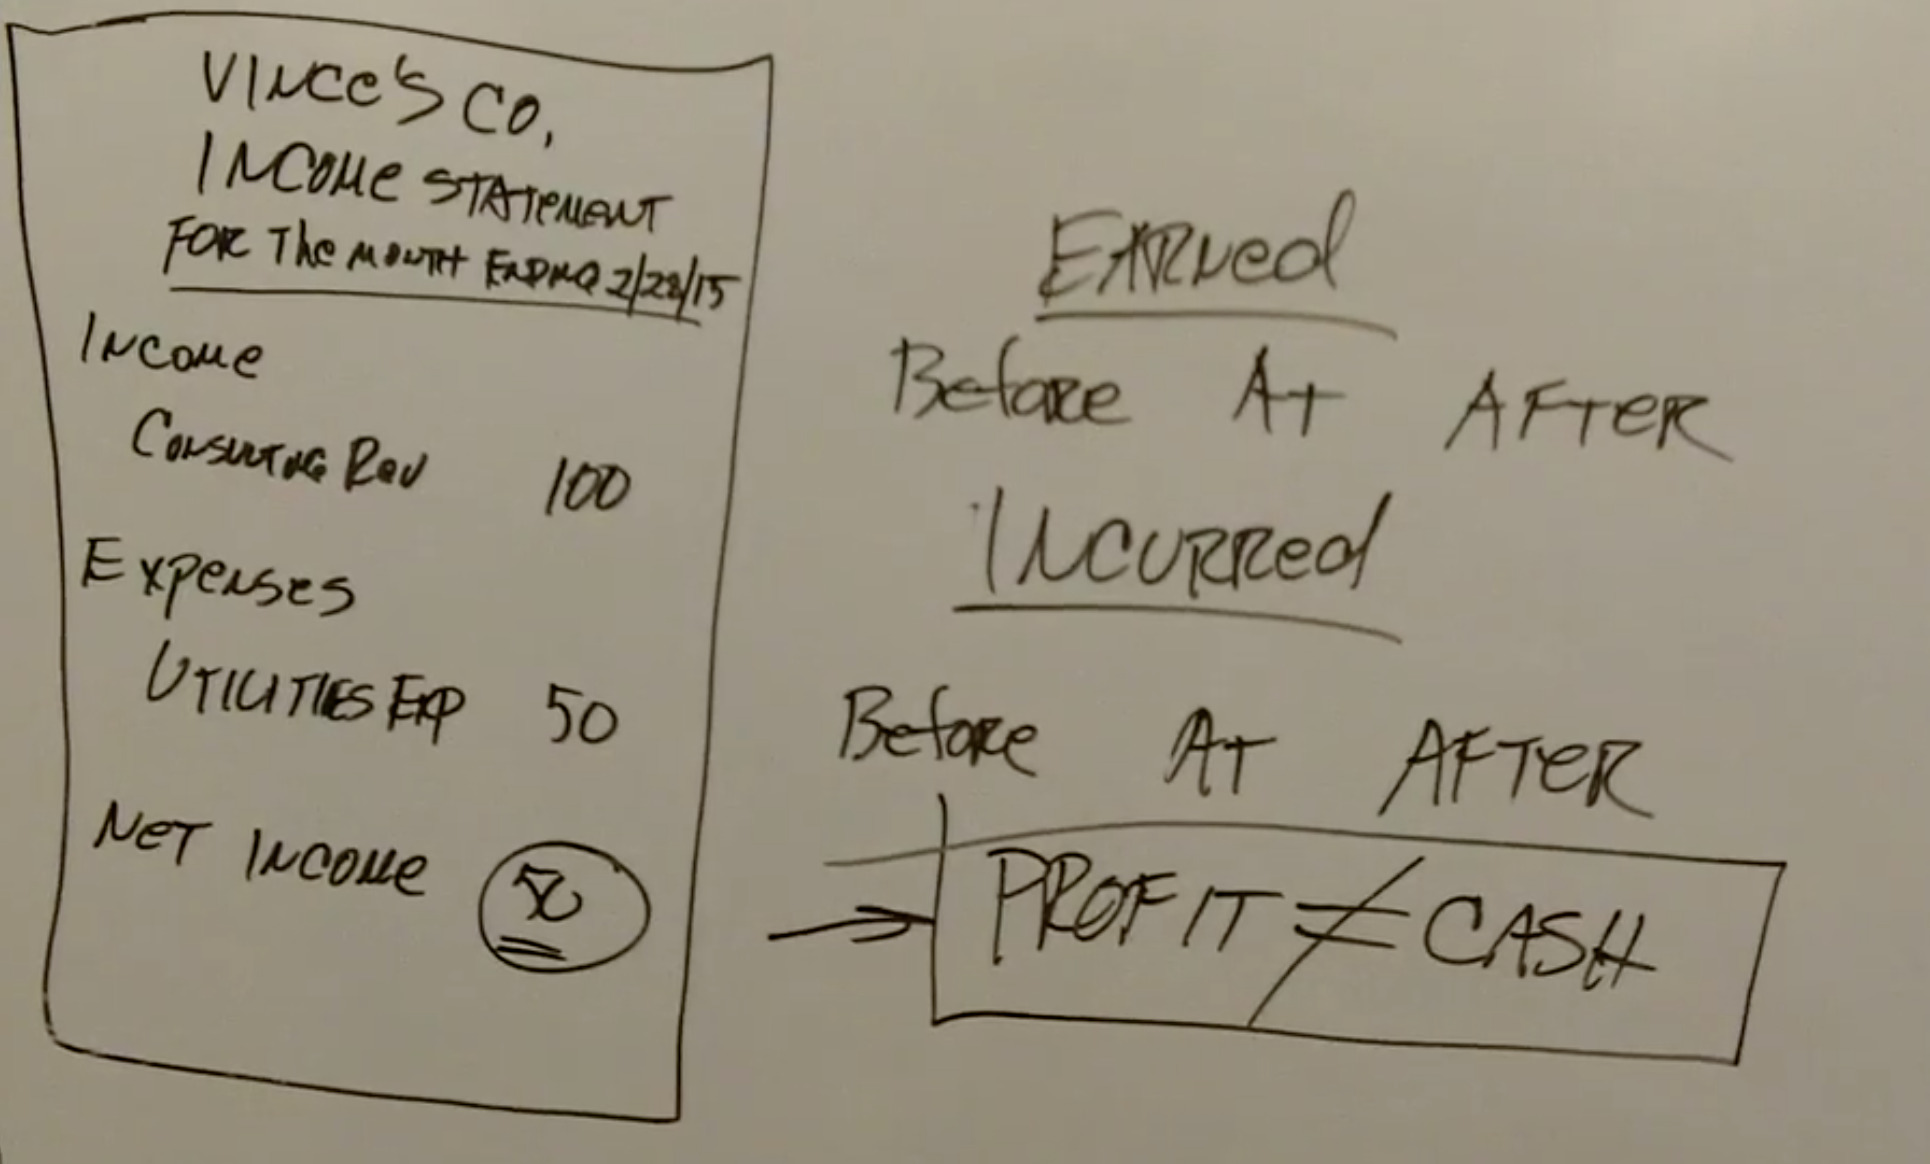 VINCe'S CO.
INCOMe STATeMeNT
FOR The MONTH ENDING 2/28/15
INCOMe
CONSULTING Rev 100
Expenses
UTILITIES Exp 50
NeT INCOMe 50
EARNed
Before AT AFTeR
INCURRed
Before AT AFTeR
PROFIT ≠ CASH